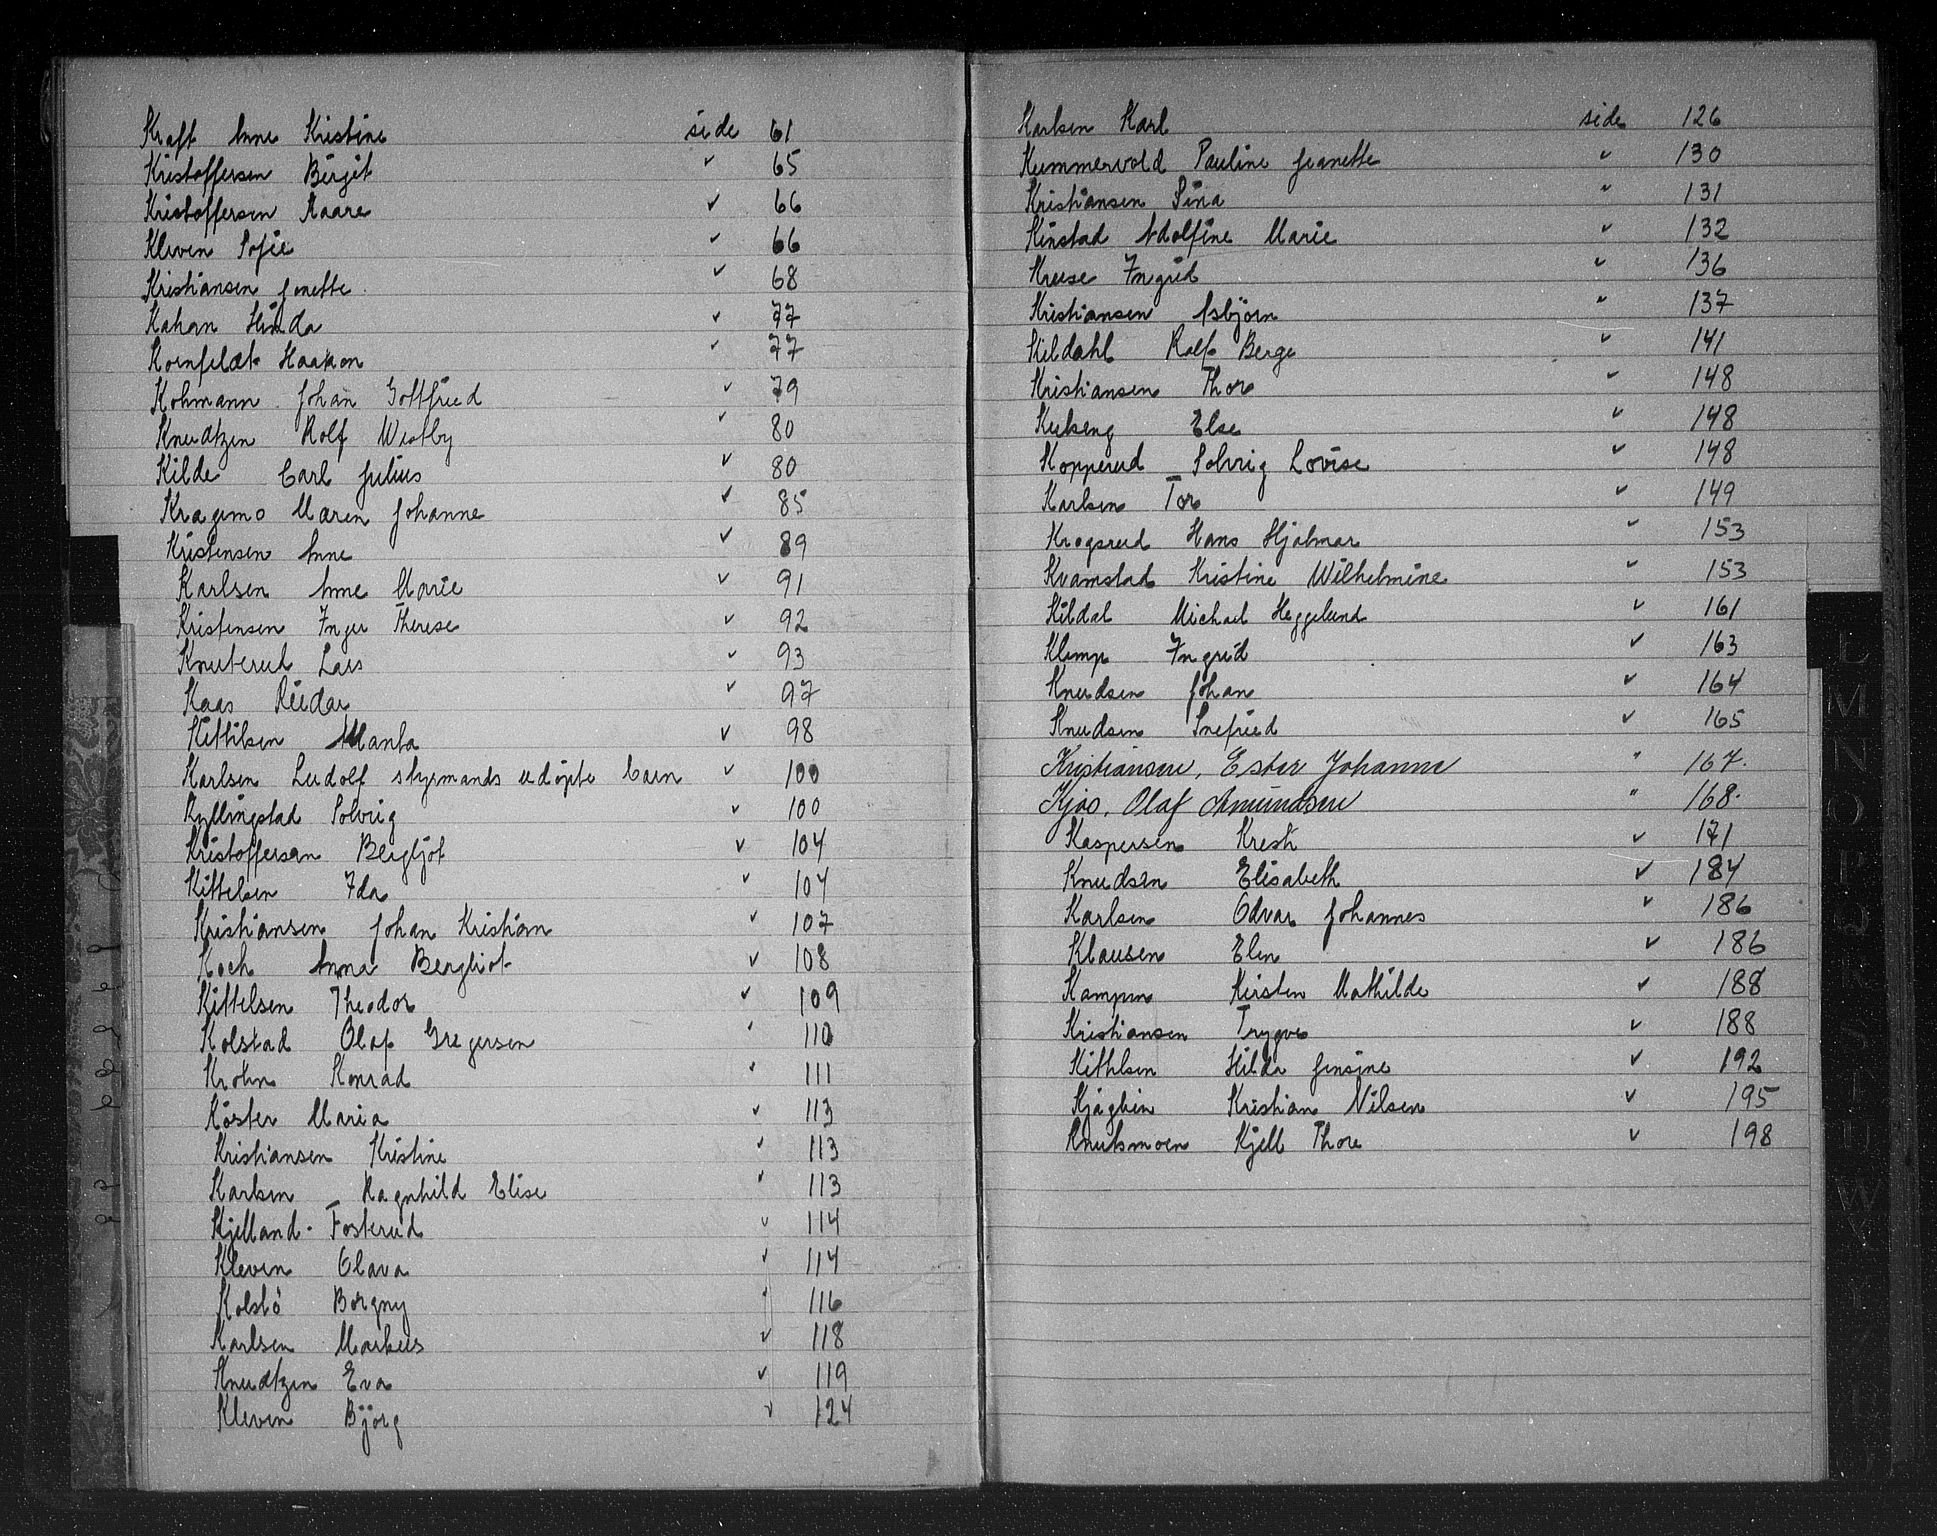 Kraft Anne Kristine side 61
Kristoffersen Birgit " 65
Kristoffersen Kaare " 66
Kleven Sofie " 66
Kristiansen Jonette " 68
Kahan Hinda " 77
Kornfeldt Haakon " 77
Kohmann Johan Gottfried " 79
Knudtzen Rolf Westby " 80
Kilde Carl Julius " 80
Kragemo Maren Johanne " 85
Kristensen Anne " 89
Karlsen Anne Marie " 91
Kristensen Inger Therese " 92
Knuterud Lars " 93
Kaas Reidar " 97
Kittilsen Manla " 98
Karlsen Ludolf styrmands udöpte barn " 100
Kyllingstad Solveig " 100
Kristoffersen Bergljot " 104
Kittelsen Ida " 104
Kristiansen Johan Kristian " 107
Koch Anna Bergliot " 108
Kittelsen Theodor " 109
Kolstad Olaf Gregersen " 110
Krohn Konrad " 111
Köster Maria " 113
Kristiansen Kristine " 113
Karlsen Ragnhild Elise " 113
Kjelland-Fosterud " 114
Kleven Olava " 114
Kolstö Borgny " 116
Karlsen Markus " 118
Knudtzen Eva " 119
Kleven Björg " 124
Karlsen Karl side 126
Kummervold Pauline Jeanette " 130
Kristiansen Sina " 131
Kinstad Adolfine Marie " 132
Kruse Ingrid " 136
Kristiansen Asbjörn " 137
Kildahl Rolf Berge " 141
Kristiansen Thor " 148
Kukeng Else " 148
Kopperud Solveig Lovise " 148
Karlsen Tor " 149
Krogsrud Hans Hjalmar " 153
Kvamstad Kristine Wilhelmine " 153
Kildal Michael Heggelund " 161
Klemp Ingrid " 163
Knudsen Johan " 164
Knudsen Snefried " 165
Kristiansen, Ester Johanna " 167.
Kjos, Olaf Amundsen " 168.
Kaspersen Kresti " 171
Knudsen Elisabeth " 184
Karlsen Odvar Johannes " 186
Klausen Elen " 186
Kampen Kirsten Mathilde " 188
Kristiansen Trygve " 188
Kittilsen Hilda Jensine " 192
Kjagbein Kristian Nilsen " 195
Knutsmoen Kjell Thore " 198
L
M
N
O
P